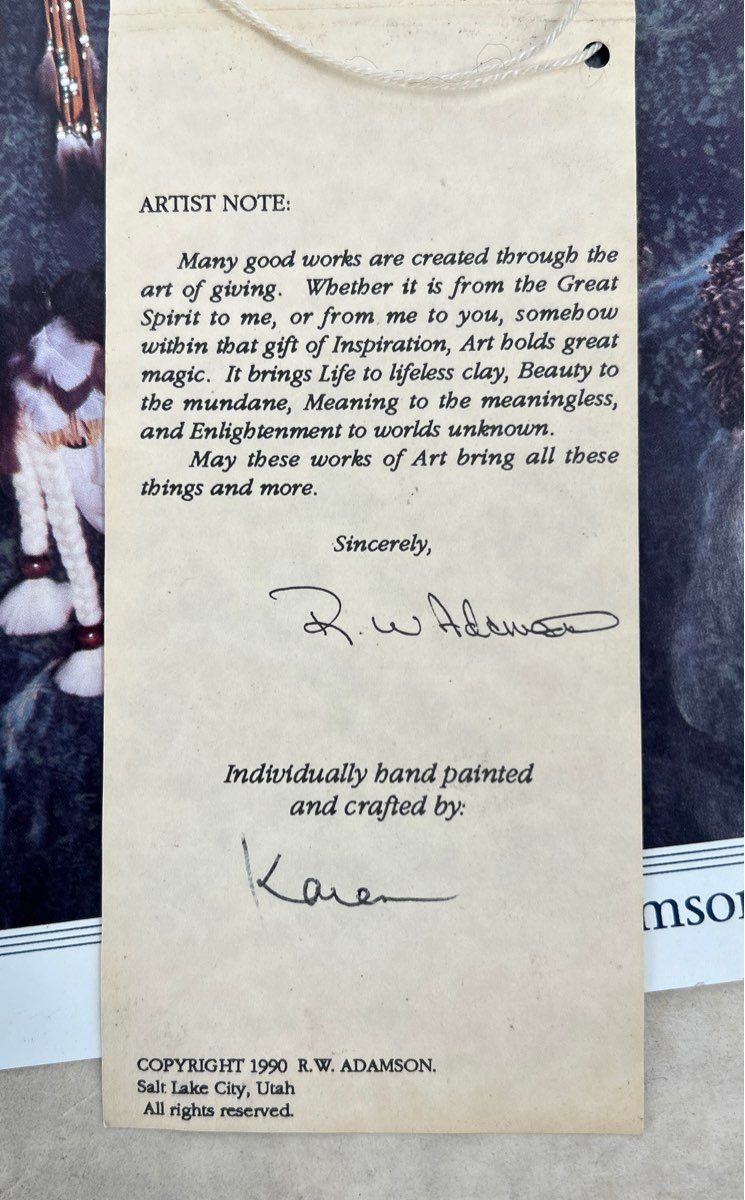 ARTIST NOTE:
Many good works are created through the
art of giving. Whether it is from the Great
Spirit to me, or from me to you, somehow
within that gift of Inspiration, Art holds great
magic. It brings Life to lifeless clay, Beauty to
the mundane, Meaning to the meaningless,
and Enlightenment to worlds unknown.
May these works of Art bring all these
things and more.
Sincerely,
R. W Adamson
Individually hand painted
and crafted by:
Karen
mson
COPYRIGHT 1990 R.W. ADAMSON.
Salt Lake City, Utah
All rights reserved.